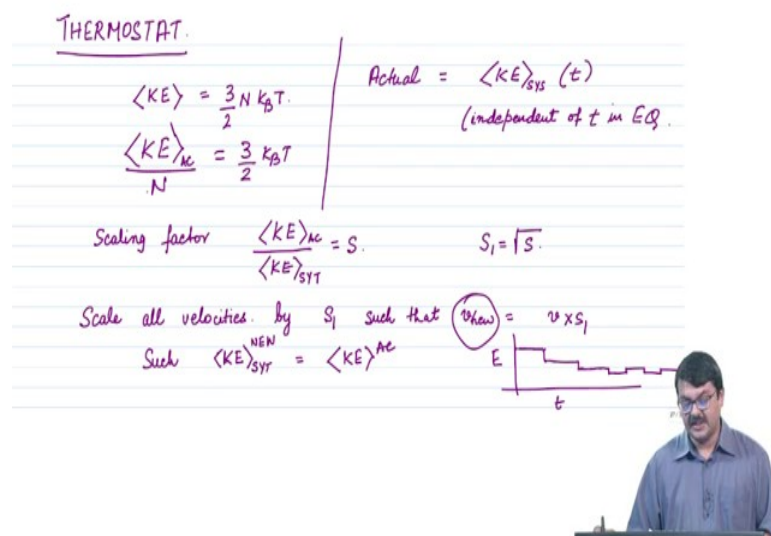 THERMOSTAT.
⟨KE⟩ = 3/2 N K_B T.
⟨KE⟩_AC / N = 3/2 K_B T
Actual = ⟨KE⟩_SYS (t)
(independent of t in EQ.
Scaling factor ⟨KE⟩_AC / ⟨KE⟩_SYT = S. S_1 = √S.
Scale all velocities. by S_1 such that v_new = v x S_1
Such ⟨KE⟩_SYT^NEW = ⟨KE⟩^AC
E
t